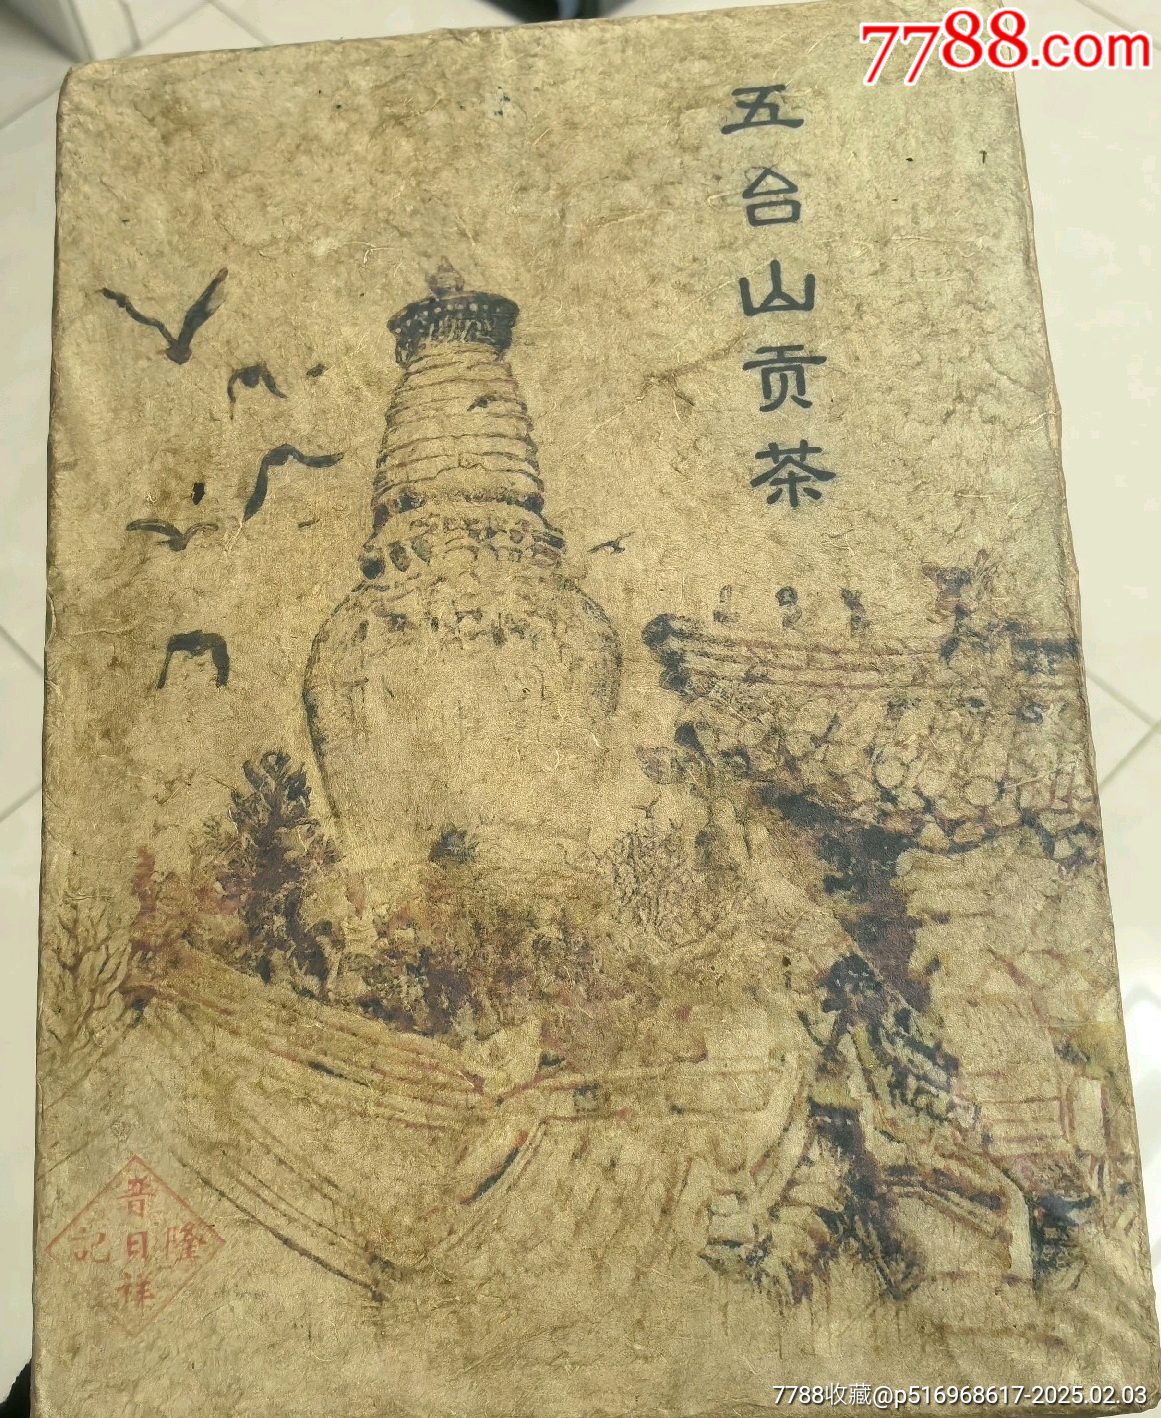 7788.com
五台山贡茶
晋
記日隆
祥
7788收藏@p516968617-2025.02.03